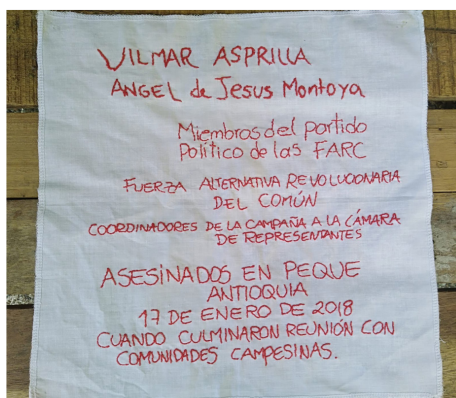 VILMAR ASPRILLA
ANGEL de Jesus Montoya
Miembros del partido
Político de las FARC
FUERZA ALTERNATIVA REVOLUCIONARIA
DEL COMÚN
COORDINADORES DE LA CAMPAÑA A LA CÁMARA
DE REPRESENTANTES
ASESINADOS EN PEQUE
ANTIOQUIA
17 DE ENERO DE 2018
CUANDO CULMINARON REUNIÓN CON
COMUNIDADES CAMPESINAS.